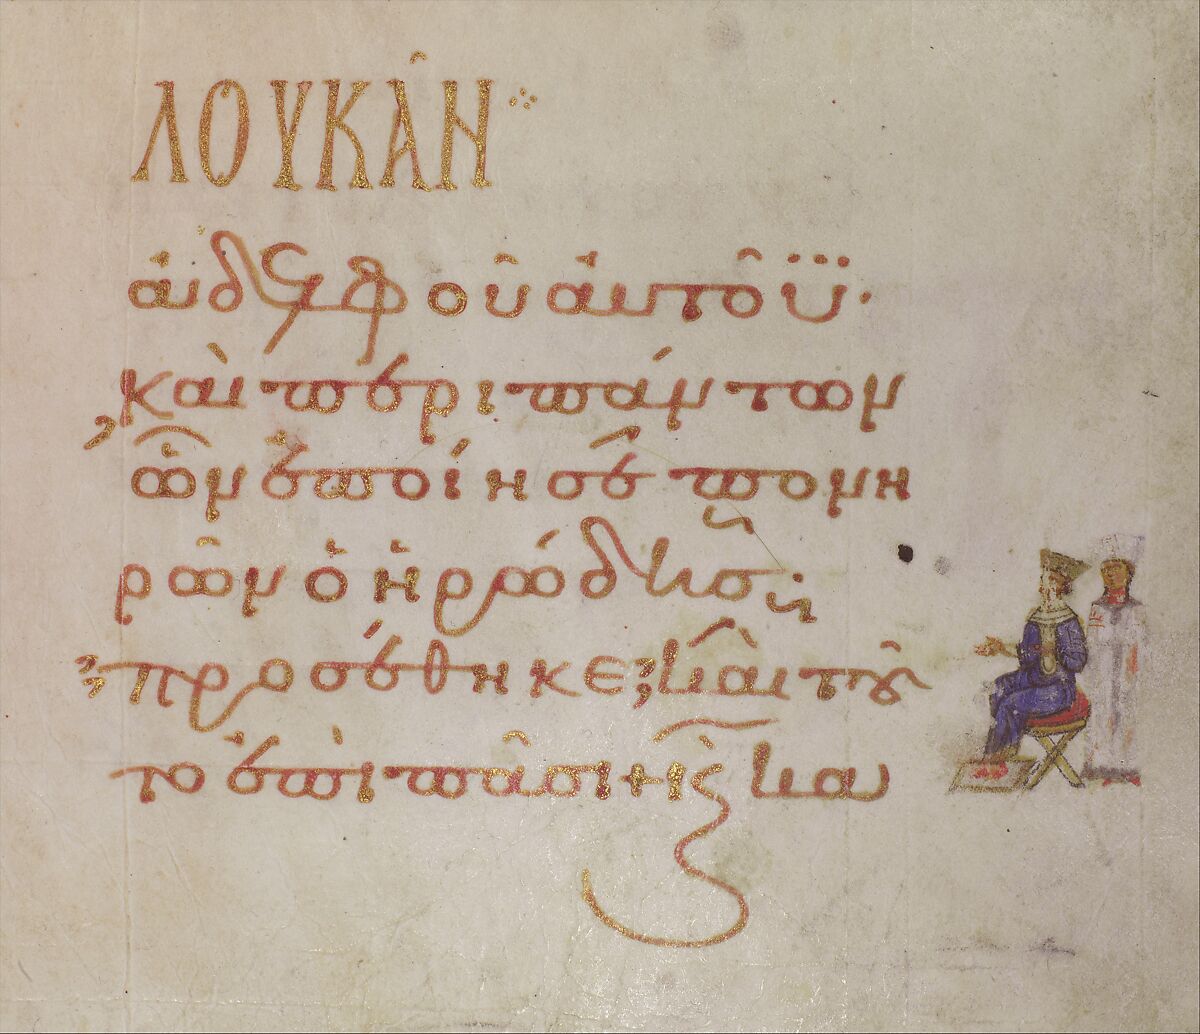 ΛΟΥΚᾶΝ
ἀδελφοῦ ἀυτοῦ·
καὶ περι πάντων
ὧν ἐποίησε πονη
ρῶν ὁ Ἡρώδησ
προσέθηκε, καὶ τοῦ
το ἐπὶ πᾶσι + κα